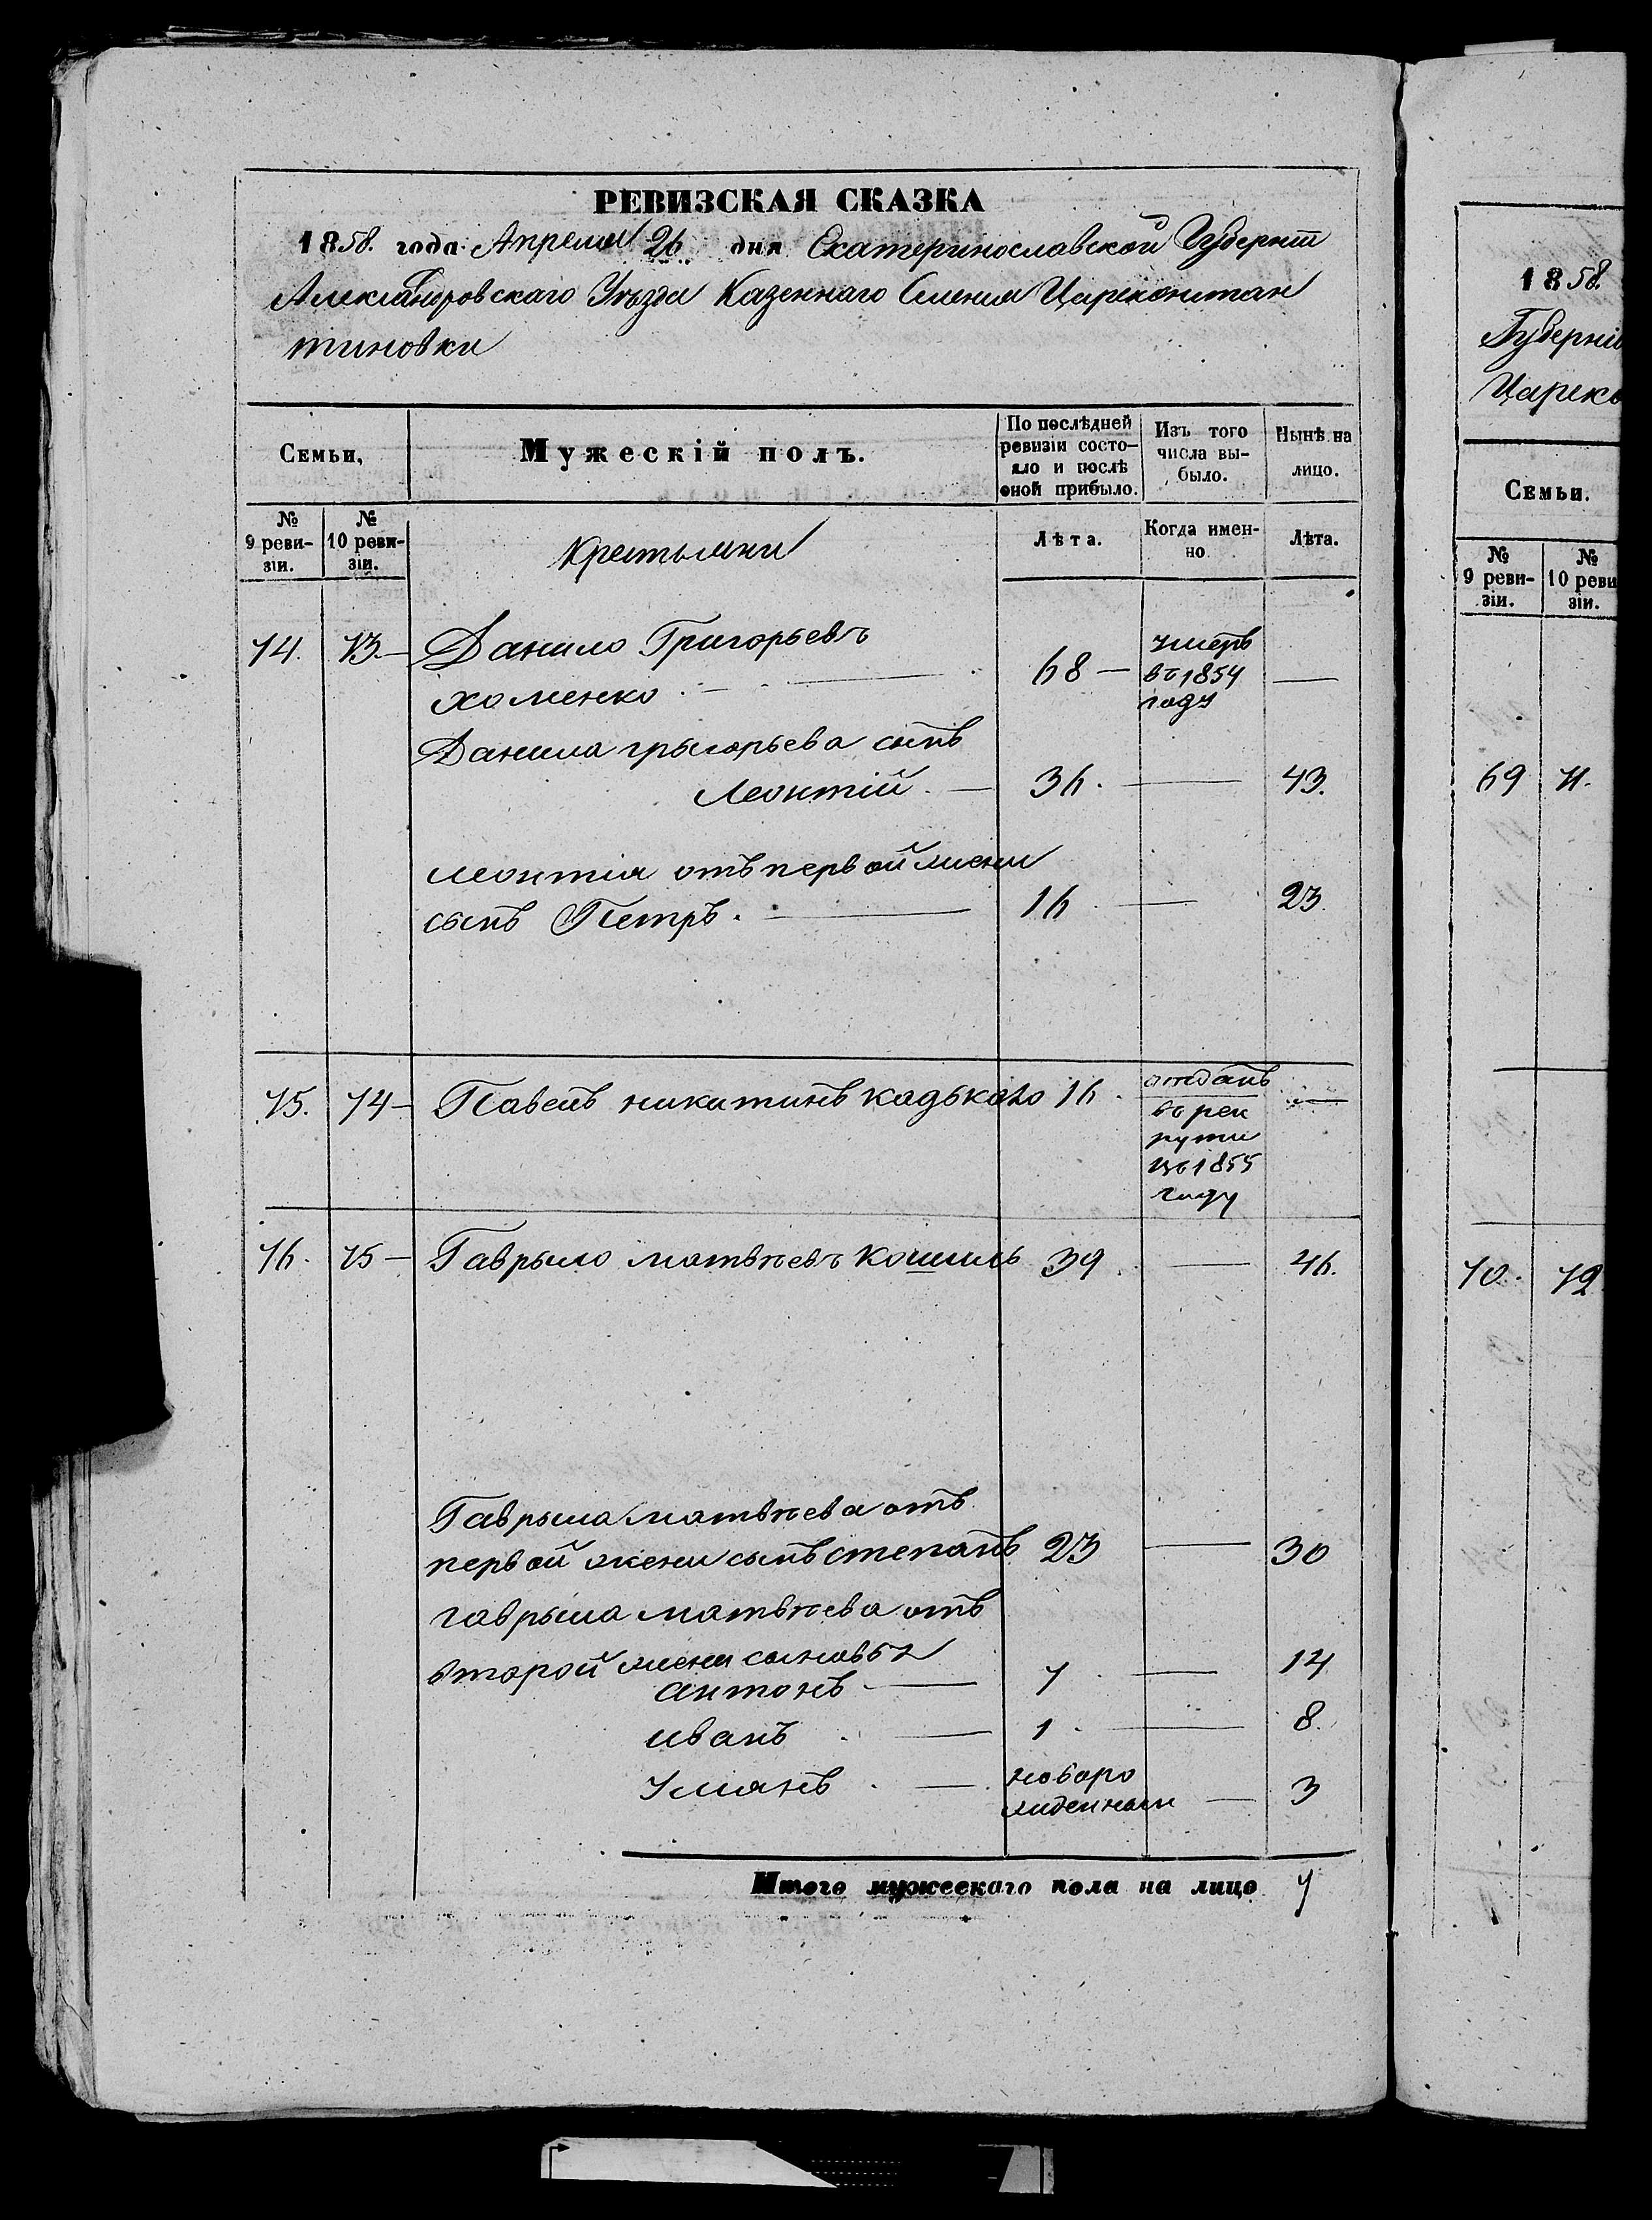 РЕВИЗСКАЯ СКАЗКА
1858. года Апреля 26 дня Екатеринославской Губернiи
Александровскаго Уѣзда Казеннаго Селения Цареконстан
тиновки
Семьи,
Мужескій полъ.
По послѣдней ревизіи состо-
яло и послѣ
оной прибыло.
Изъ того
числа вы-
было.
Нынѣ на
лицо.
№
9 реви-
зіи.
№
10 реви-
зіи.
Крестьяни
Лѣта.
Когда имен-
но
Лѣта.
74. 73. Данило Григорьевъ
Хоменко 68 умеръ
въ 1854
году
Данила григорьева сынъ
Леонтій 36. 43.
леонтія отъ первой жени
сынъ Петръ. 16 23.
75. 74 Павелъ никитинъ 16 отданъ
въ рек
рути
въ 1855
году
76. 75 Гаврыло матвѣевъ 39 46.
Гаврыла матвѣева отъ
первой жени сынъ степанъ 23 30
гаврыла матвѣева отъ
второй жени сыновья
антонъ 7 14
иванъ 1 8.
новоро
жденный 3
Итого мужескаго пола на лицо 7
1858.
Губерніи
Царек
Семьи.
№
9 реви-
зіи.
№
10 реви
зіи.
69 71.
70. 72